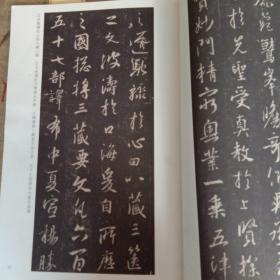 鷲峰瞻奇
於先聖受真教於上賢探
賾妙門精窮奧業一乘五律
之道馳驟於心田八藏三篋
之文波濤於口海爰自所歷
之國揔將三藏要文凡六百
五十七部譯布中夏宣揚勝